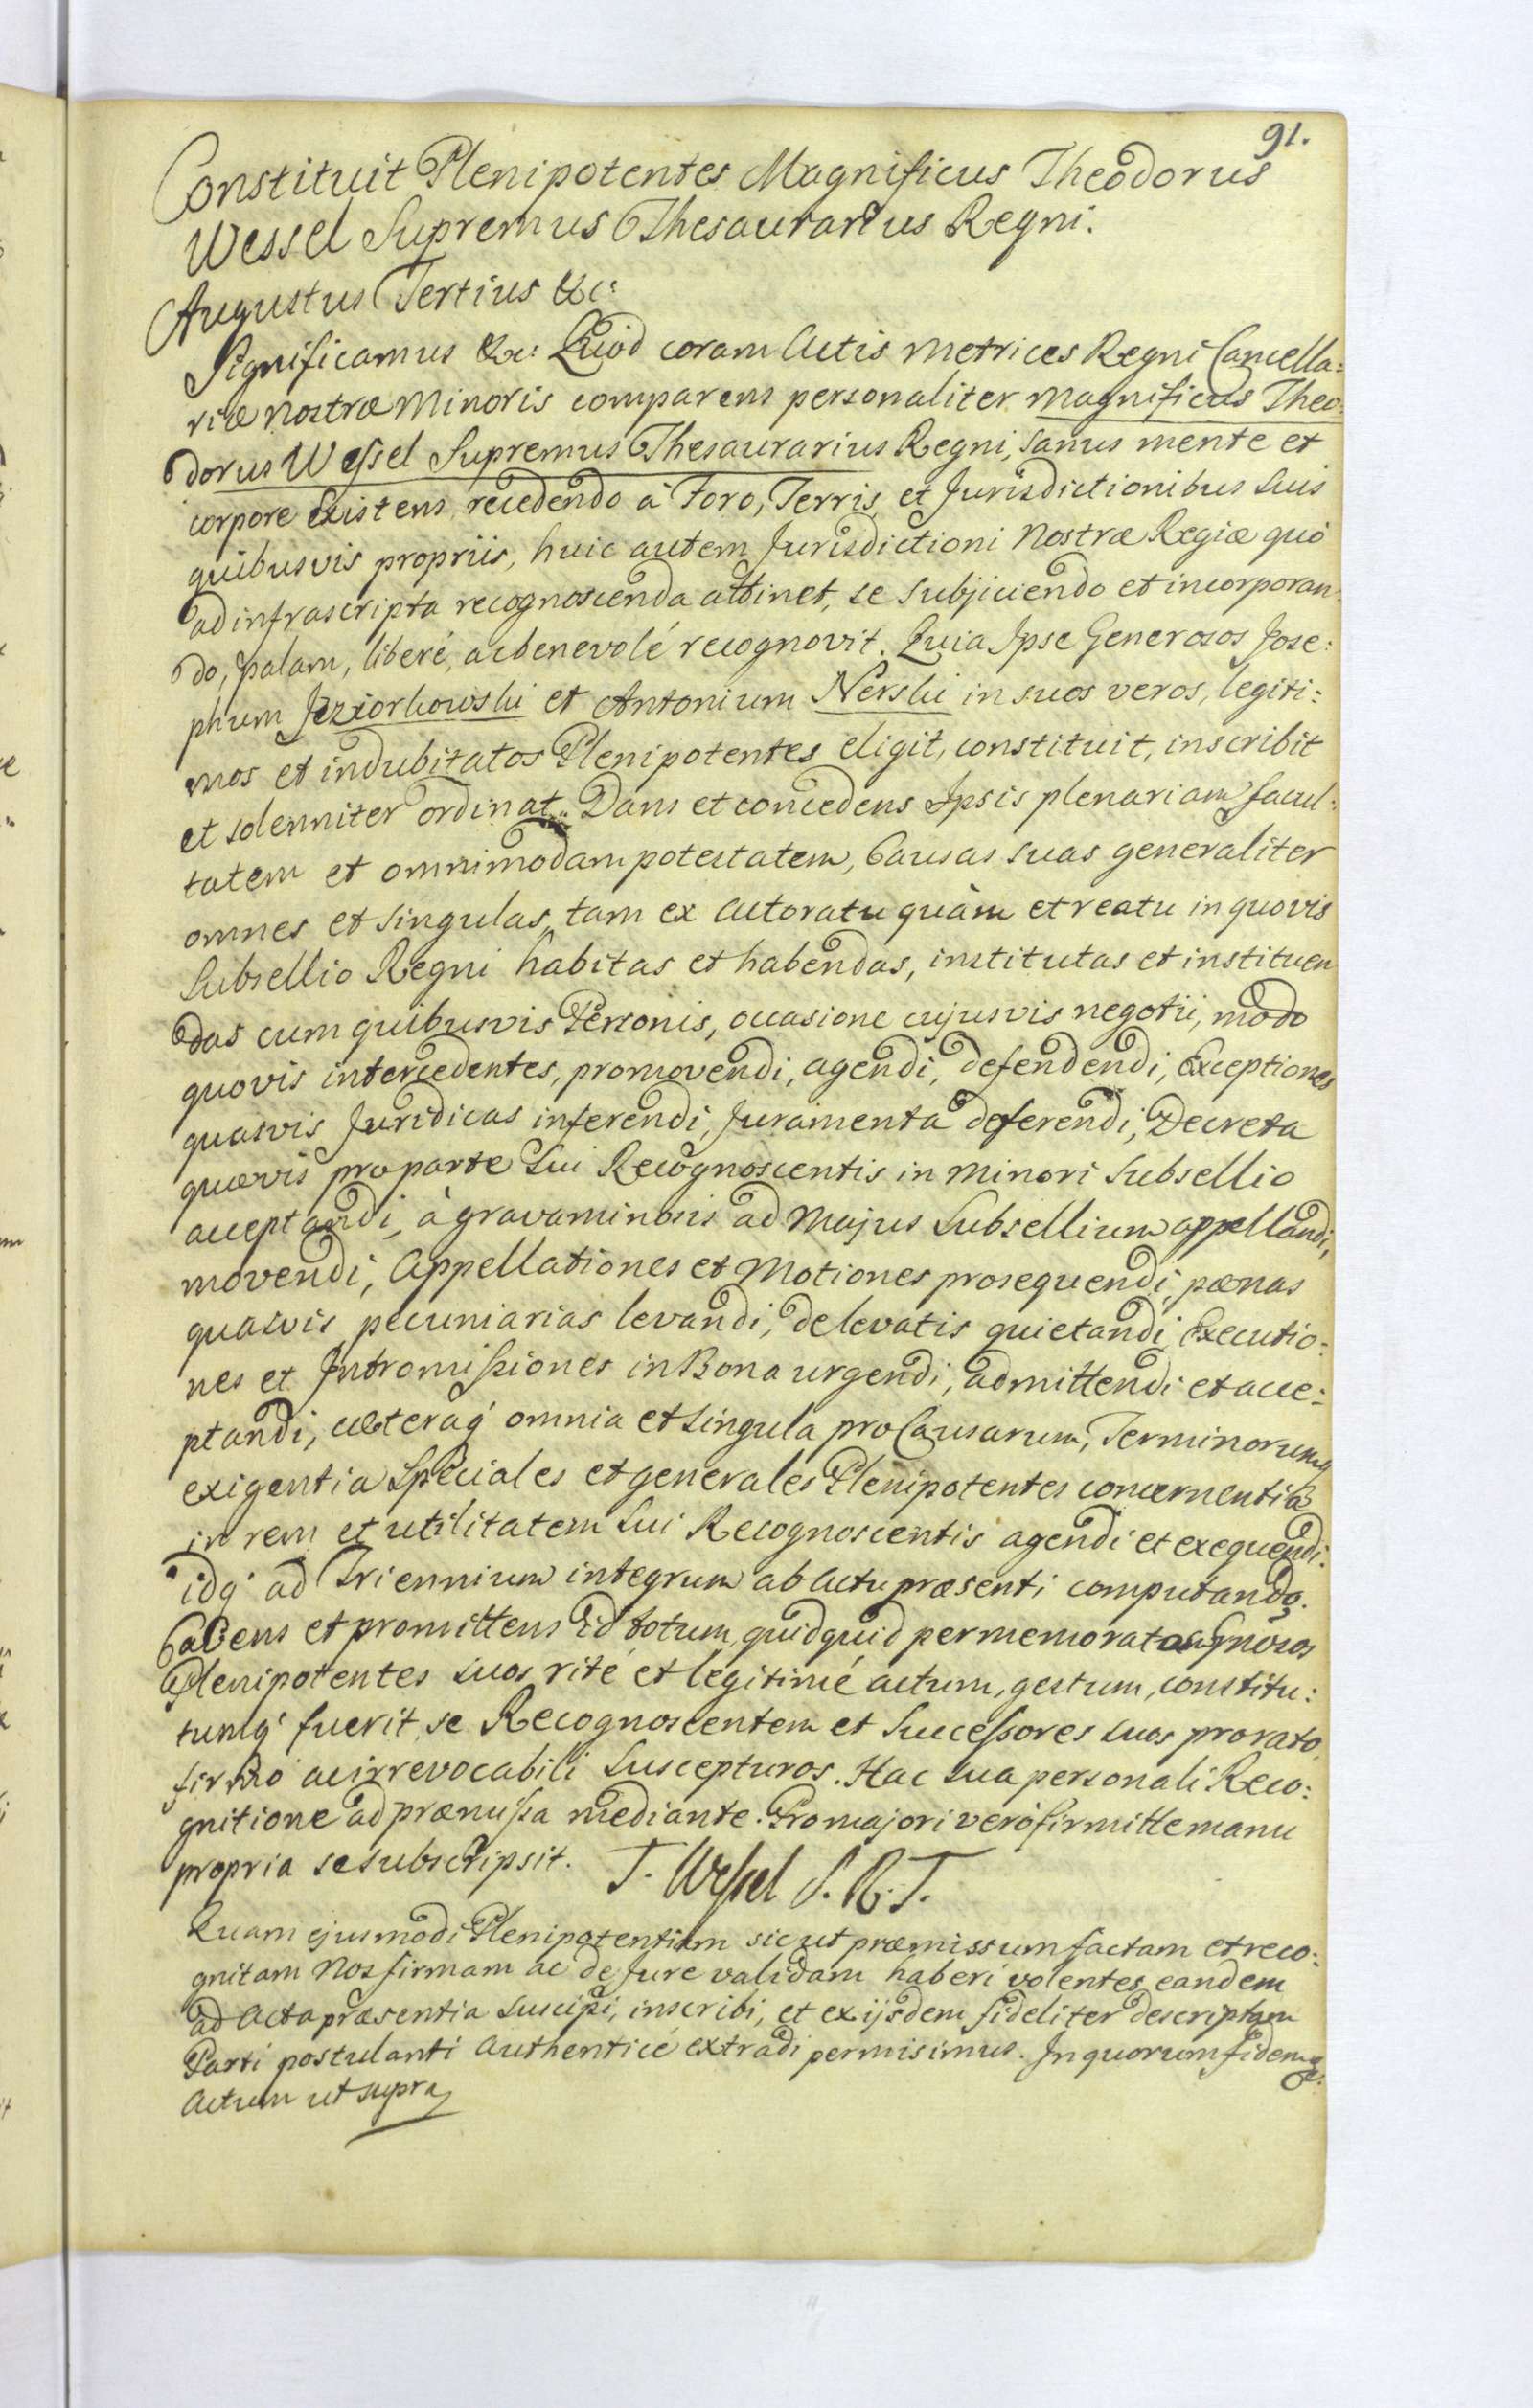 91.
Constituit Plenipotentes Magnificus Theodorus
Wessel Supremus Thesaurarius Regni.
Augustus Tertius &c:
Significamus &c: Quod coram Actis Metrices Regni Cancella:
riæ Nostræ Minoris comparens personaliter Magnificus Theo:
dorus Wessel Supremus Thesaurarius Regni, sanus mente et
corpore existens, recedendo à Foro, Terris, et Jurisdictionibus Suis
quibusvis propriis, huic autem Jurisdictioni Nostræ Regiæ quò
ad infrascripta recognoscenda attinet, se subjiciendo et incorporan:
do, palam, liberé, ac benevolé recognovit. Quia Ipse Generosos Jose:
phum Jeziorkowski et Antonium Nerski in suos veros, legiti:
mos et indubitatos Plenipotentes eligit, constituit, inscribit
et solenniter ordinat. Dans et concedens Ipsis plenariam facul:
tatem et omnimodam potestatem, Causas suas generaliter
omnes et singulas, tam ex actoratu quàm et reatu in quovis
Subsellio Regni habitas et habendas, institutas et instituen
das cum quibusvis Personis, occasione cujusvis negotii, modo
quovis intercedentes, promovendi, agendi, defendendi, Exceptiones
quasvis Juridicas inferendi, Juramenta deferendi, Decreta
quævis pro parte Sui Recognoscentis in Minori Subsellio
acceptandi, à gravaminosis ad Majus Subsellium appellandi,
movendi, Appellationes et Motiones prosequendi, pænas
quasvis pecuniarias levandi, de levatis quietandi, Executio:
nes et Intromissiones in Bona urgendi, admittendi et acce:
ptandi, cæteraq' omnia et singula pro Causarum, Terminorumq
exigentia Speciales et generales Plenipotentes concernentia
in rem et utilitatem Sui Recognoscentis agendi et exequendi.
idq' ad Triennium integrum ab Actu præsenti computando.
Cavens et promittens id totum, quidquid per memoratos Gnosos
Plenipotentes suos rité et legitimé actum, gestum, constitu:
tumq' fuerit, se Recognoscentem et Successores suos pro rato,
firmo ac irrevocabili suscepturos. Hac sua personali Reco:
gnitione ad præmissa mediante. Pro majori verò firmitte manu
propria se subscripsit. T. Wessel S. R. T.
Quam ejusmodi Plenipotentiam sic ut præmissum factam et reco:
gnitam Nos firmam ac de Jure validam haberi volentes, eandem
ad Acta præsentia suscipi, inscribi, et ex ijsdem fideliter descriptam
Parti postulanti authenticé extradi permisimus. In quorum fidem &.
Actum ut supra